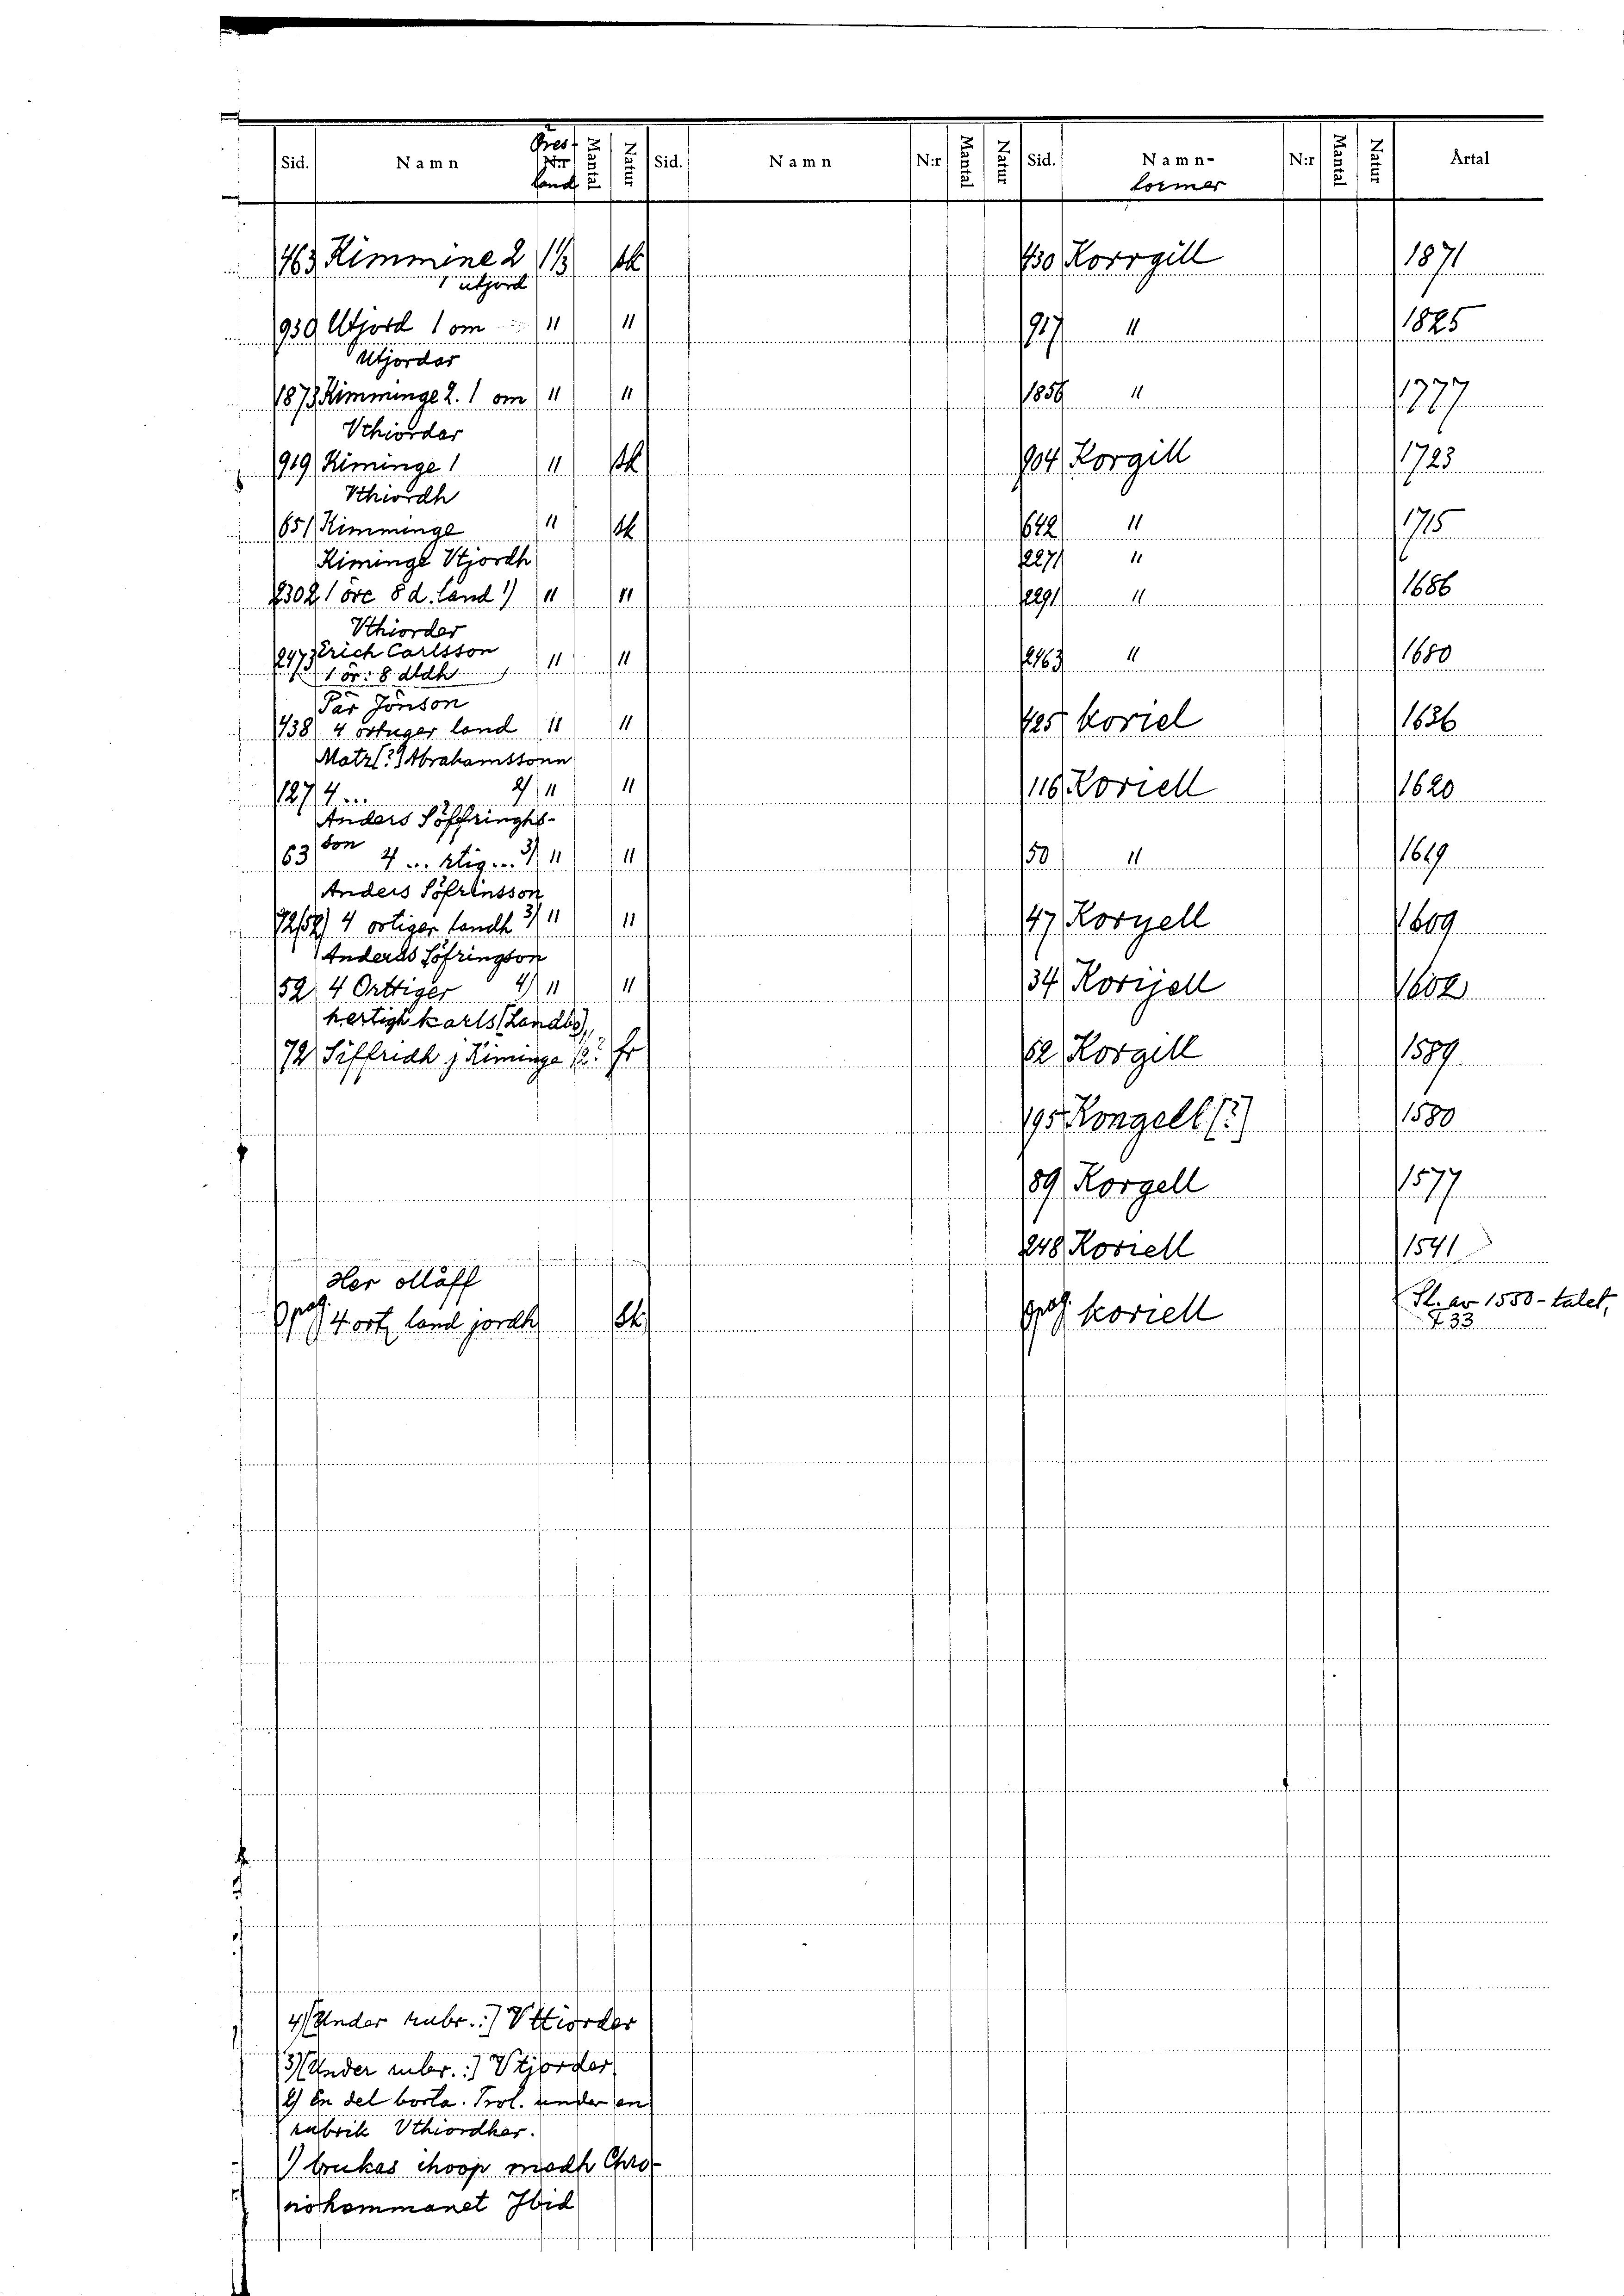 Sid. Namn Öres- N:r land Mantal Natur Sid. Namn N:r Mantal Natur Sid. Namn-former N:r Mantal Natur Årtal
463 Kimmine 2 1 1/3 sk 430 Korrgill 1871
1 utjord
930 Utjord 1 om " " 917 " 1825
Utjordar
1873 Kimminge 2. 1 om " " 1856 " 1777
Vthiordar
919 Kiminge 1 " sk 904 Korgill 1723
Vthiordh
651 Kimminge " sk 642 " 1715
Kiminge Vtjordh 2271 "
2302 1 öre 8 d. land 1) " " 2291 " 1686
Vthiorder
Erich Carlsson
2473 1 ör: 8 dldh " " 2463 " 1680
Pär Jönson
438 4 örtuger land " " 425 koriel 1636
Matz [?] Abrahamssonn
127 4 ... 2) " " 116 Koriell 1620
Anders Söffringhs-
63 son 4 ... rtig... 3) " " 50 " 1619
Anders Söfrinsson
72(52) 4 ortiger landh 3) " " 47 Koryell 1609
Anderss Söfringson
52 4 Orttiger 4) " " 34 Korijell 1602
hertigh karls [Landbo]
72 Siffridh j Kiminge 2? fr 62 Korgill 1589
195 Kongell [?] 1580
89 Korgell 1577
248 Koriell 1541
Her ollåff
Opag. 4 ortz land jordh Sk opag. koriell Sl. av 1550-talet,
F 33
4) [Under rubr.:] Vttiorder
3) [Under rubr.:] Vtjorder
2) En del borta. Trol. under en
rubrik Vthiordher.
1) brukas ihoop medh Chro-
niohemmanet Jbid